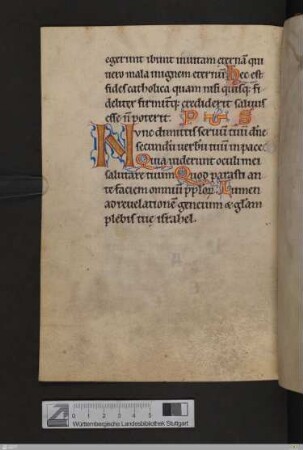 egerunt ibunt in uitam eternā qui
uero mala in ignem eternū hec est
fides catholica quam nisi quisq; fi
deliter firmiterq; crediderit saluus
esse ñ poterit. P S
Nunc dimittis seruū tuū dñe
secundū uerbū tuū in pace
Quia uiderunt oculi mei
salutare tuum Quod parasti an
te faciem omniū pplor̄ Lumen
ad reuelationē gentium & glam
plebis tuę israhel.
0 1 2 3 4 5
Württembergische Landesbibliothek Stuttgart